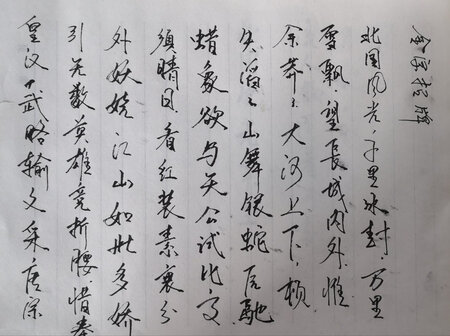 金字招牌
北国风光,千里冰封万里
雪飘望長城内外惟
余莽々大河上下,頓
失滔々山舞银蛇原馳
蜡象欲与天公试比高
須晴日看红装素裹分
外妖娆江山如此多娇
引无数英雄竞折腰惜秦
皇汉武略输文采唐宗